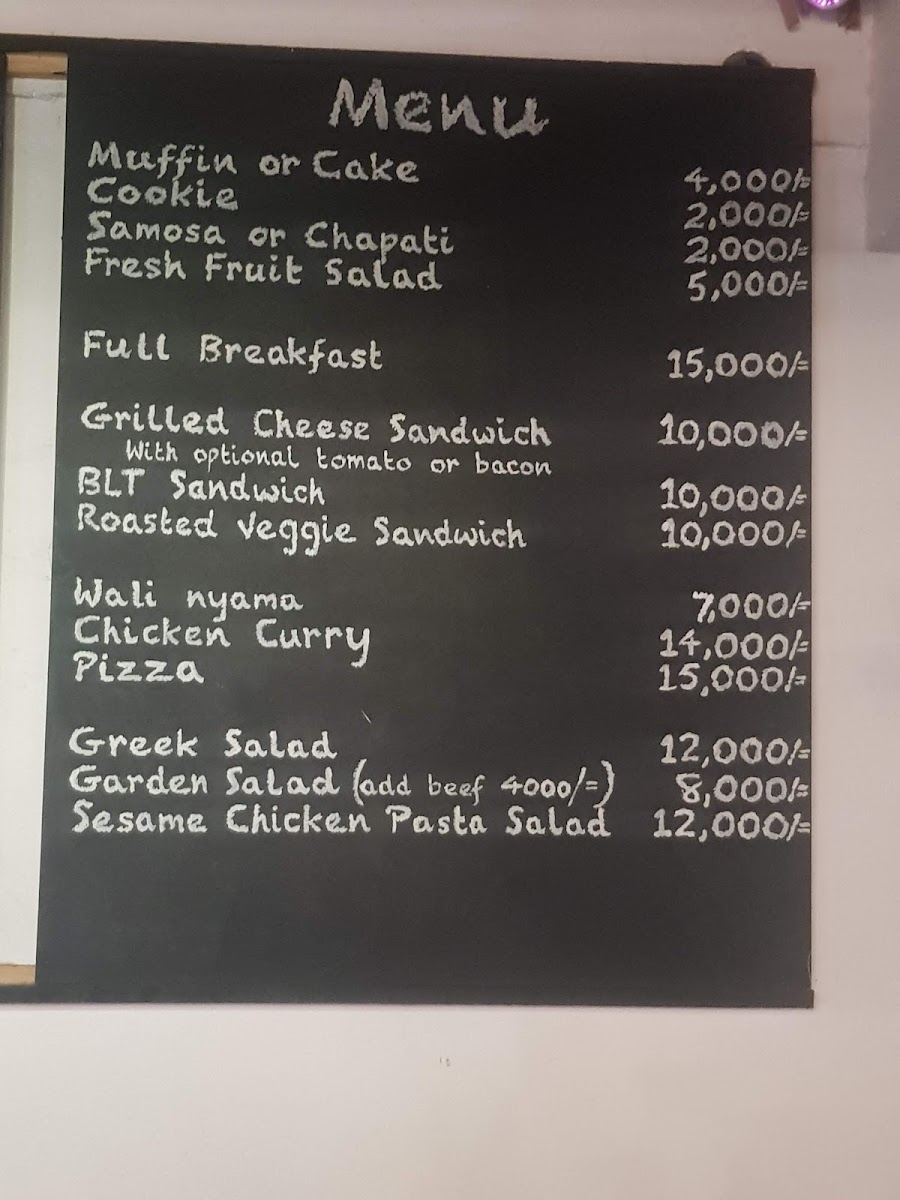 Menu
Muffin or Cake 4,000/=
Cookie 2,000/=
Samosa or Chapati 2,000/=
Fresh Fruit Salad 5,000/=
Full Breakfast 15,000/=
Grilled Cheese Sandwich 10,000/=
With optional tomato or bacon
BLT Sandwich 10,000/=
Roasted Veggie Sandwich 10,000/=
Wali nyama 7,000/=
Chicken Curry 14,000/=
Pizza 15,000/=
Greek Salad 12,000/=
Garden Salad (add beef 4000/=) 8,000/=
Sesame Chicken Pasta Salad 12,000/=